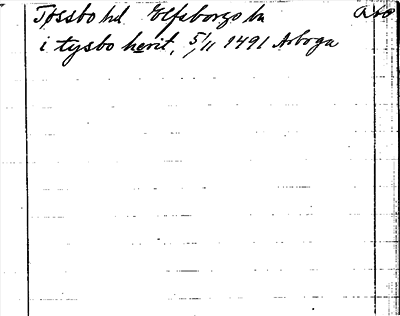 Tössbo hd Elfsborgs ln
i tysbo herit, 5/11 1491 Arboga